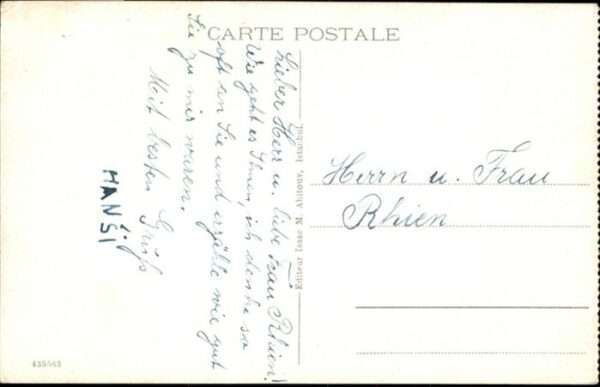 CARTE POSTALE
Lieber Herr u. liebe Frau Rhien!
Wie geht es Ihnen, ich denke so
oft an Sie und erzähle wie gut
Sie zu mir waren.
Mit besten Grüß
HANSI
Editeur Isaac M. Ahitouv, Istanbul.
Herrn u. Frau
Rhien